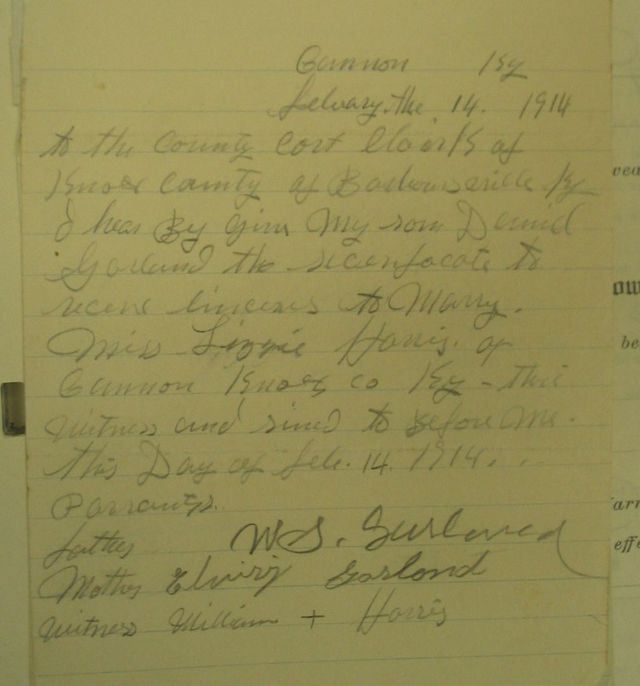 Cannon Ky
Febuary. the. 14. 1914
to the County Cort Clair/S of
Knoex County of Barbourseville Ky
I hear By give My son Daniel
Garland the to
recene lincenes to Marry.
Miss Lizzie Harris. of
Cannon Knoex co Ky - this
witness and sined to before Me.
this Day of Feb. 14. 1914.
Parrants.
father W.S. Garland
Mother Elviry Garland
witness William + Harris
vea
ow
be
arr
effe